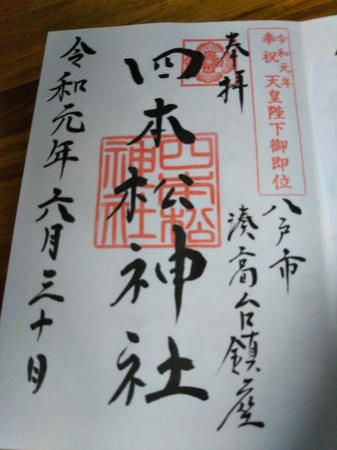 令和元年
奉祝 天皇陛下御即位
奉拝
八戸市
湊高台鎮座
四本松神社
四本松
神社
令和元年六月三十日